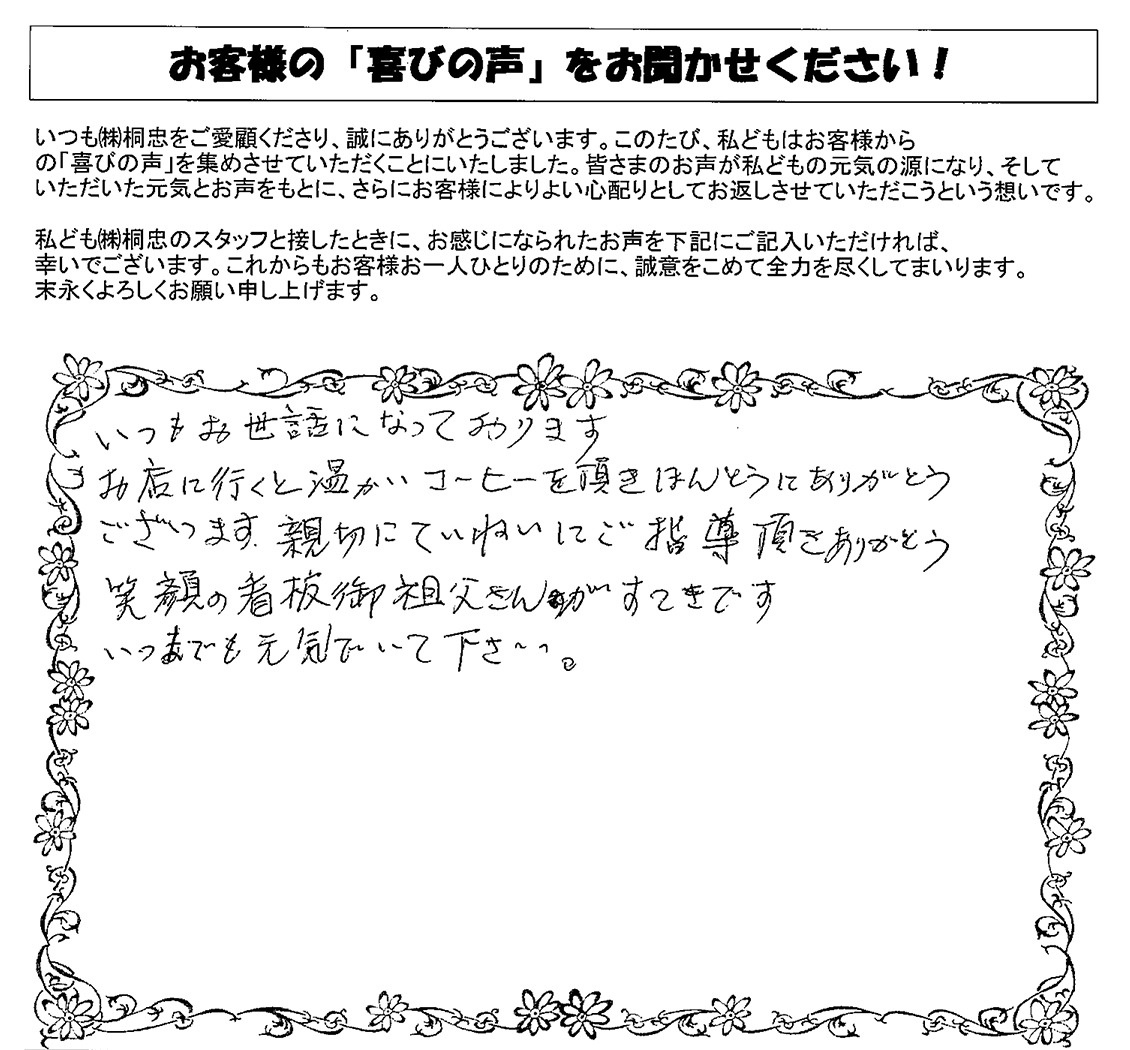 お客様の「喜びの声」をお聞かせください!
いつも㈱桐忠をご愛顧くださり、誠にありがとうございます。このたび、私どもはお客様から
の「喜びの声」を集めさせていただくことにいたしました。皆さまのお声が私どもの元気の源になり、そして
いただいた元気とお声をもとに、さらにお客様によりよい心配りとしてお返しさせていただこうという想いです。
私ども㈱桐忠のスタッフと接したときに、お感じになられたお声を下記にご記入いただければ、
幸いでございます。これからもお客様お一人ひとりのために、誠意をこめて全力を尽くしてまいります。
末永くよろしくお願い申し上げます。
いつもお世話になっております
お店に行くと温かいコーヒーを頂きほんとうにありがとう
ございます。親切にていねいにご指導頂きありがとう
笑顔の看板御祖父さんがすてきです
いつまでも元気でいて下さい。